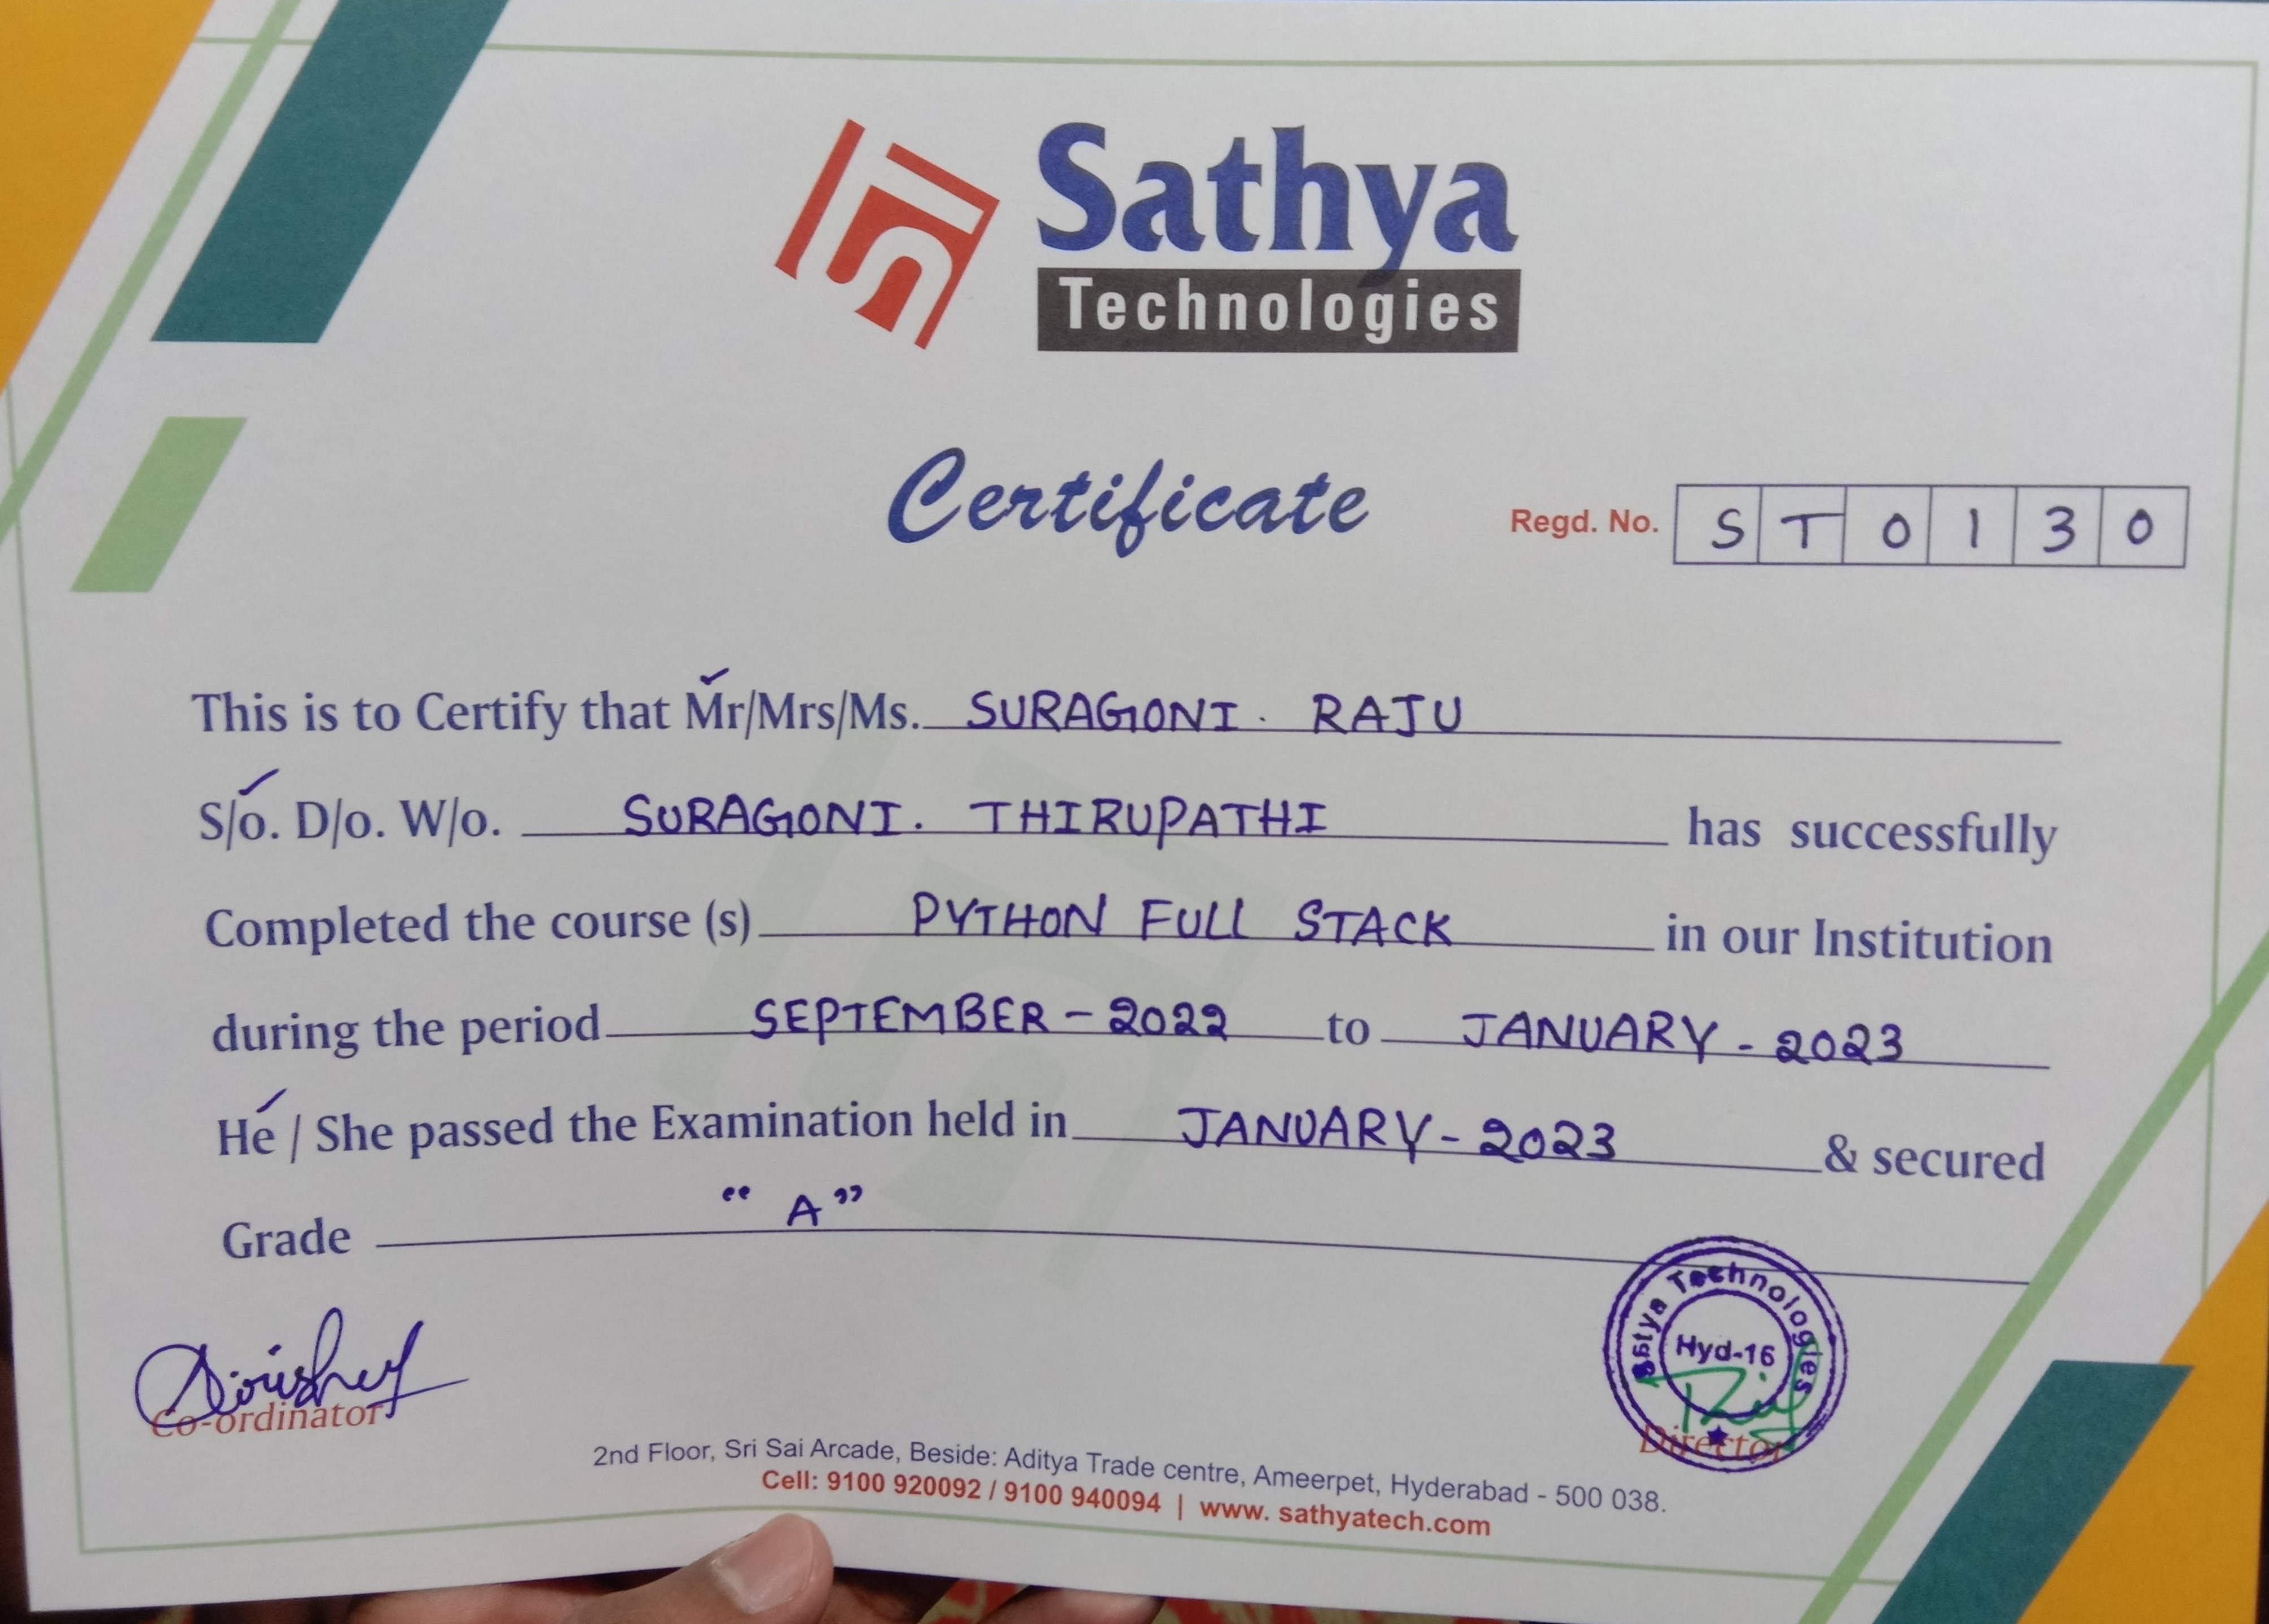 Sathya
Technologies
Certificate
Regd. No. ST0130
This is to Certify that Mr/Mrs/Ms. SURAGONI. RAJU
S/o. D/o. W/o. SURAGONI. THIRUPATHI has successfully
Completed the course (s) PYTHON FULL STACK in our Institution
during the period SEPTEMBER - 2022 to JANUARY - 2023
He / She passed the Examination held in JANUARY - 2023 & secured
Grade "A"
Satya Technologies
Hyd-16
Co-ordinator
Director
2nd Floor, Sri Sai Arcade, Beside: Aditya Trade centre, Ameerpet, Hyderabad - 500 038.
Cell: 9100 920092 / 9100 940094 | www. sathyatech.com